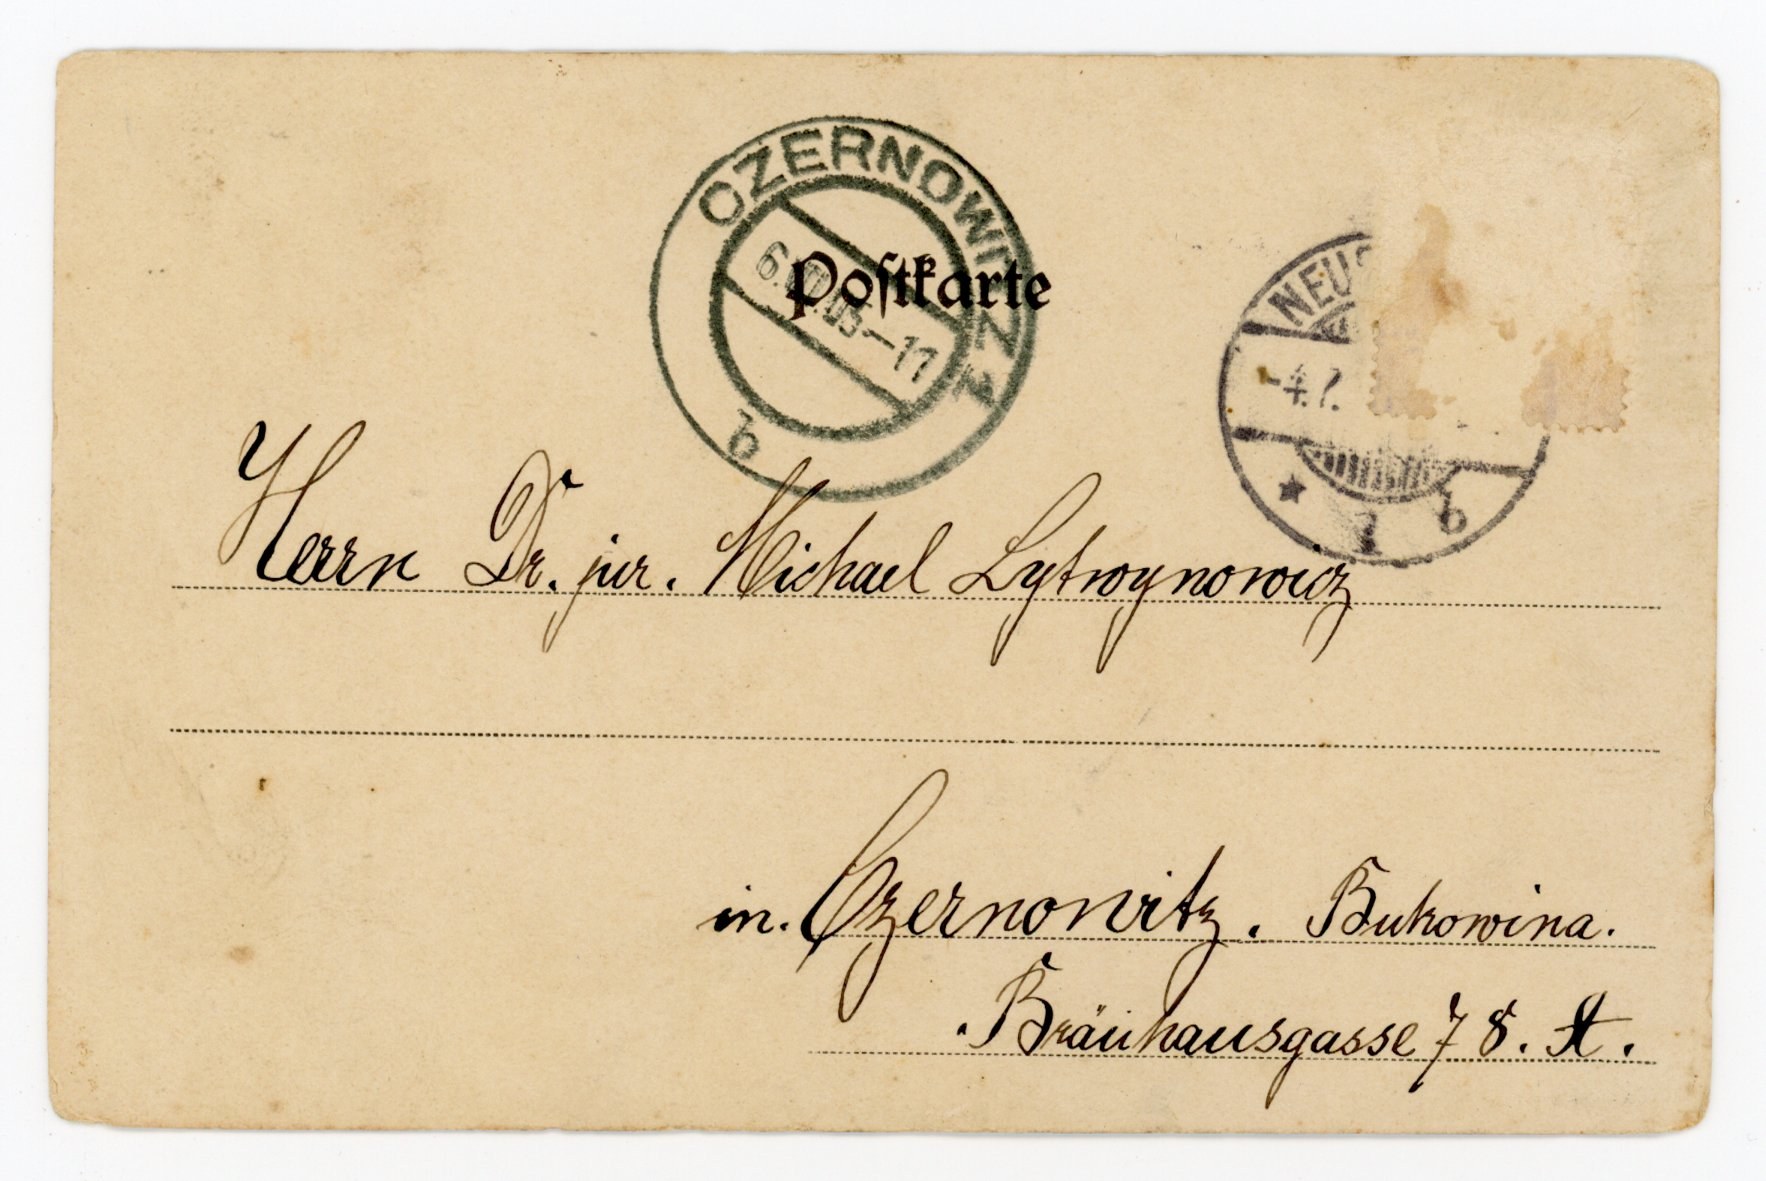 CZERNOWITZ 1
Postkarte
NEUS
-4.7.
-11
b
* 1 b
Herrn Dr. jur. Michael Lytwynowicz
in. Czernowitz. Bukowina.
Bräuhausgasse 78. A.